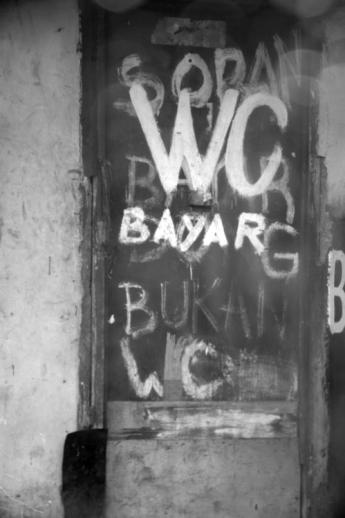 SORAN
WC
BAYAR
BUKAN
WC
B